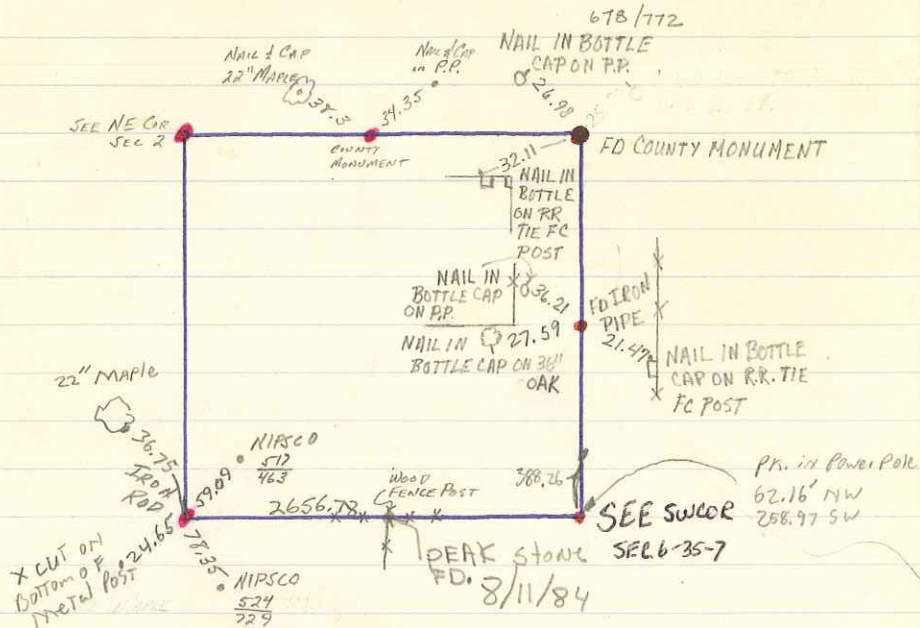 678/772
NAIL IN BOTTLE
CAP ON P.P.
26.98
NAIL & CAP
22" MAPLE
38.3
NAIL & CAP
in P.P.
34.35
SEE NE COR.
SEC 2
COUNTY
MONUMENT
FD COUNTY MONUMENT
32.11
NAIL IN
BOTTLE
ON RR
TIE FC
POST
NAIL IN
BOTTLE CAP
ON P.P.
36.21
FD IRON
PIPE
21.47
NAIL IN BOTTLE
CAP ON R.R. TIE
FC POST
NAIL IN
BOTTLE CAP ON 36"
OAK
27.59
22" MAPLE
36.75
IRON
ROD
59.09
NIPSCO
517
463
2656.78
WOOD
FENCE POST
388.26
P.K. in Power Pole
62.16' NW
258.97 SW
SEE SWCOR
SEC. 6-35-7
X CUT ON
Bottom OF
Metal Post
24.65
78.35
NIPSCO
524
729
DEAK Stone
FD.
8/11/84